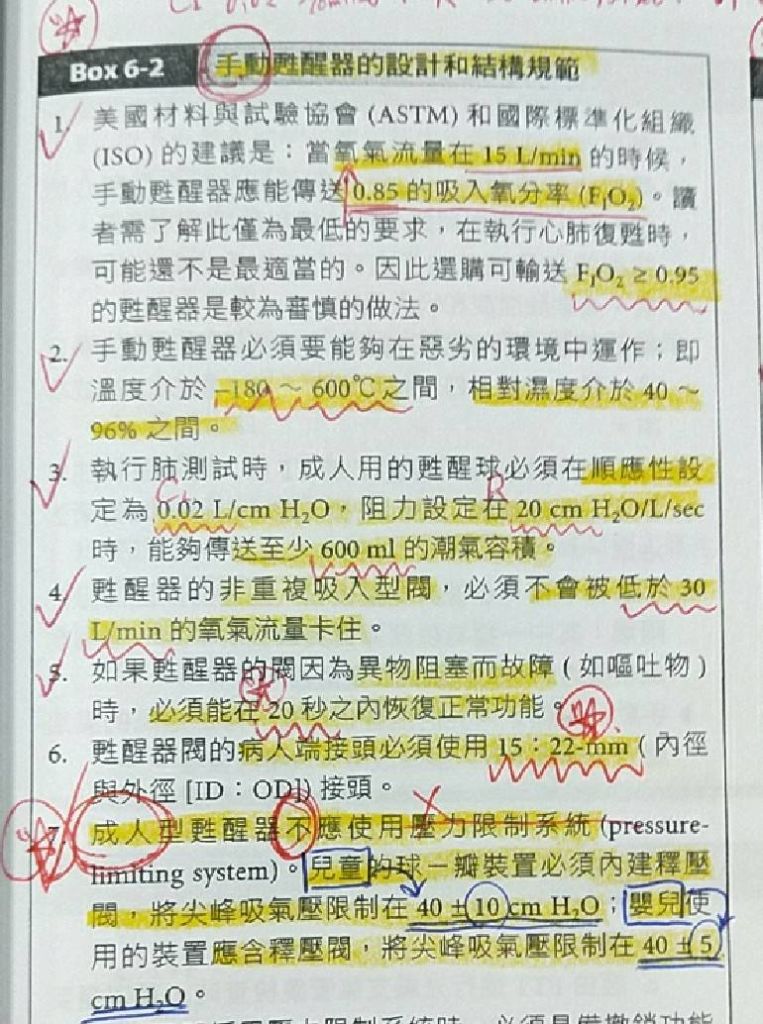 Box 6-2 手動甦醒器的設計和結構規範
1. 美國材料與試驗協會 (ASTM) 和國際標準化組織
(ISO) 的建議是：當氧氣流量在 15 L/min 的時候，
手動甦醒器應能傳送 0.85 的吸入氧分率 (FIO2)。讀
者需了解此僅為最低的要求，在執行心肺復甦時，
可能還不是最適當的。因此選購可輸送 FIO2 ≥ 0.95
的甦醒器是較為審慎的做法。
2. 手動甦醒器必須要能夠在惡劣的環境中運作；即
溫度介於 –180 ~ 600℃ 之間，相對濕度介於 40 ~
96% 之間。
3. 執行肺測試時，成人用的甦醒球必須在順應性設
CL R
定為 0.02 L/cm H2O，阻力設定在 20 cm H2O/L/sec
時，能夠傳送至少 600 ml 的潮氣容積。
4. 甦醒器的非重複吸入型閥，必須不會被低於 30
L/min 的氧氣流量卡住。
5. 如果甦醒器的閥因為異物阻塞而故障 ( 如嘔吐物 )
時，必須能在 20 秒之內恢復正常功能。
6. 甦醒器閥的病人端接頭必須使用 15：22-mm ( 內徑
與外徑 [ID：OD]) 接頭。
7. 成人型甦醒器不應使用壓力限制系統 (pressure-
limiting system)。兒童的球－瓣裝置必須內建釋壓
閥，將尖峰吸氣壓限制在 40 ± 10 cm H2O；嬰兒使
用的裝置應含釋壓閥，將尖峰吸氣壓限制在 40 ± 5
cm H2O。